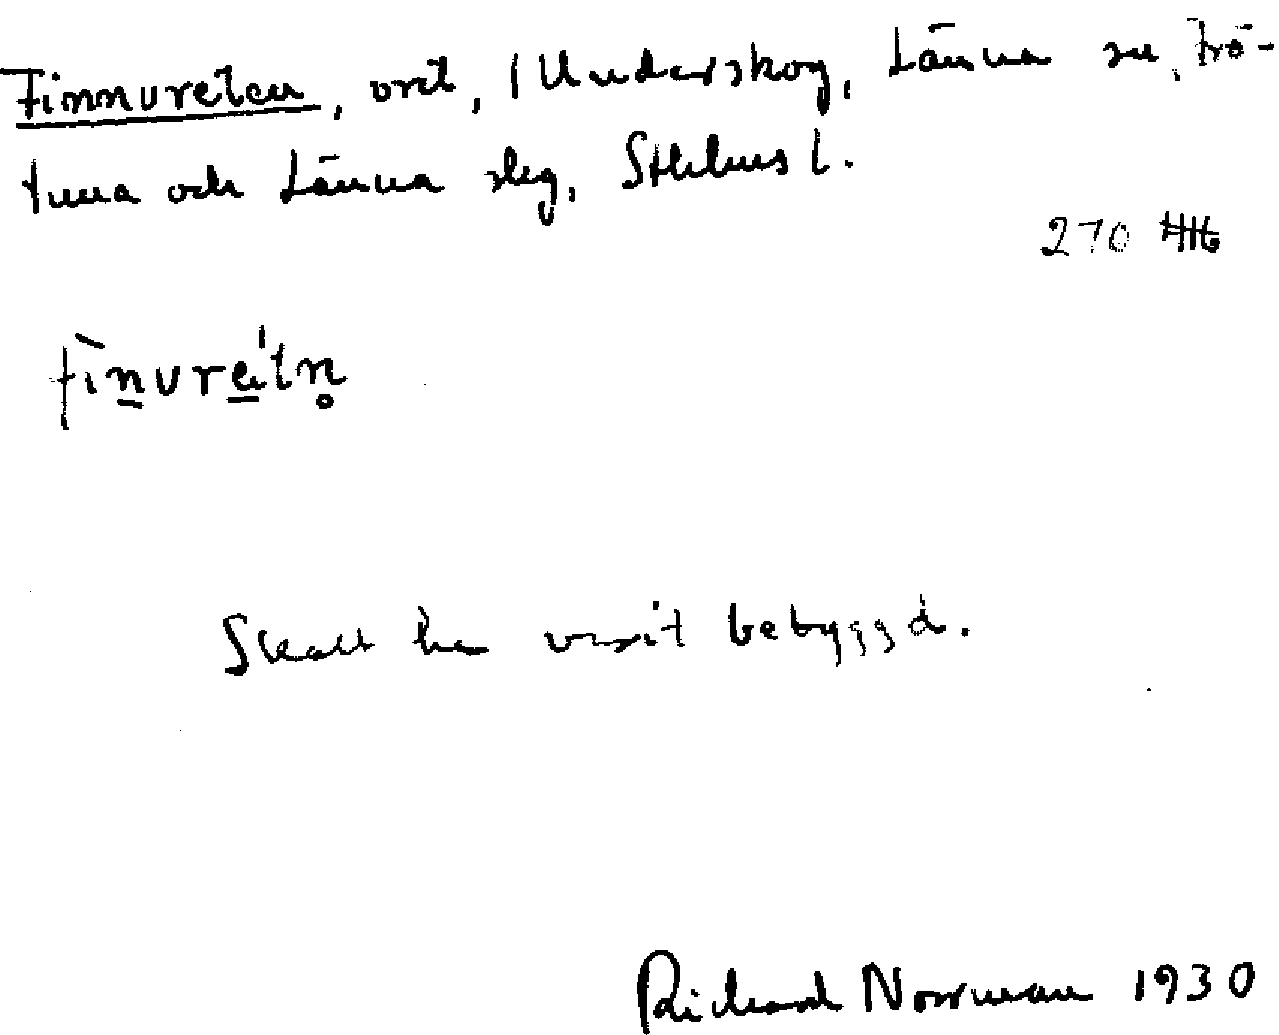 Finnvreten, vret, / Underskog, Länna sn, Frö-
tuna och Länna slg, Sthlms l.
270
finvretn
Skall ha varit bebyggd.
Richard Norrman 1930